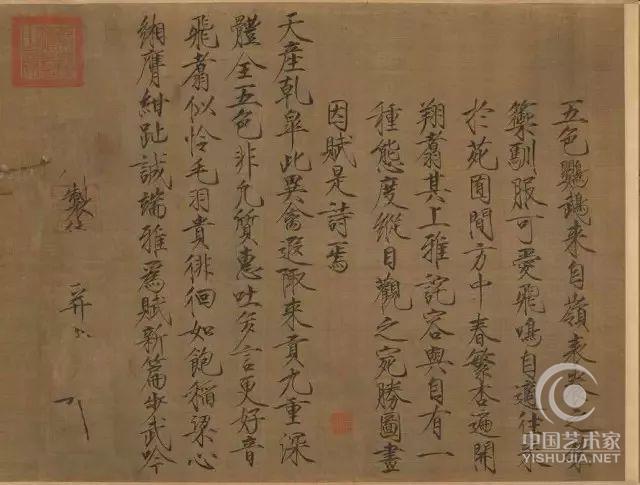 五色鸚鵡來自嶺表之
籞馴服可愛飛鳴自適往來
於苑囿間方中春繁杏遍開
翔翥其上雅詫容與自有一
種態度縱目觀之宛勝圖畫
因賦是詩焉
天產乾皋此異禽遐陬來貢九重深
體全五色非凡質惠吐多言更好音
飛翥似憐毛羽貴徘徊如飽稻粱心
緗膺紺趾誠端雅爲賦新篇步武吟
製
并
中国艺术家
YISHUJIA.NET